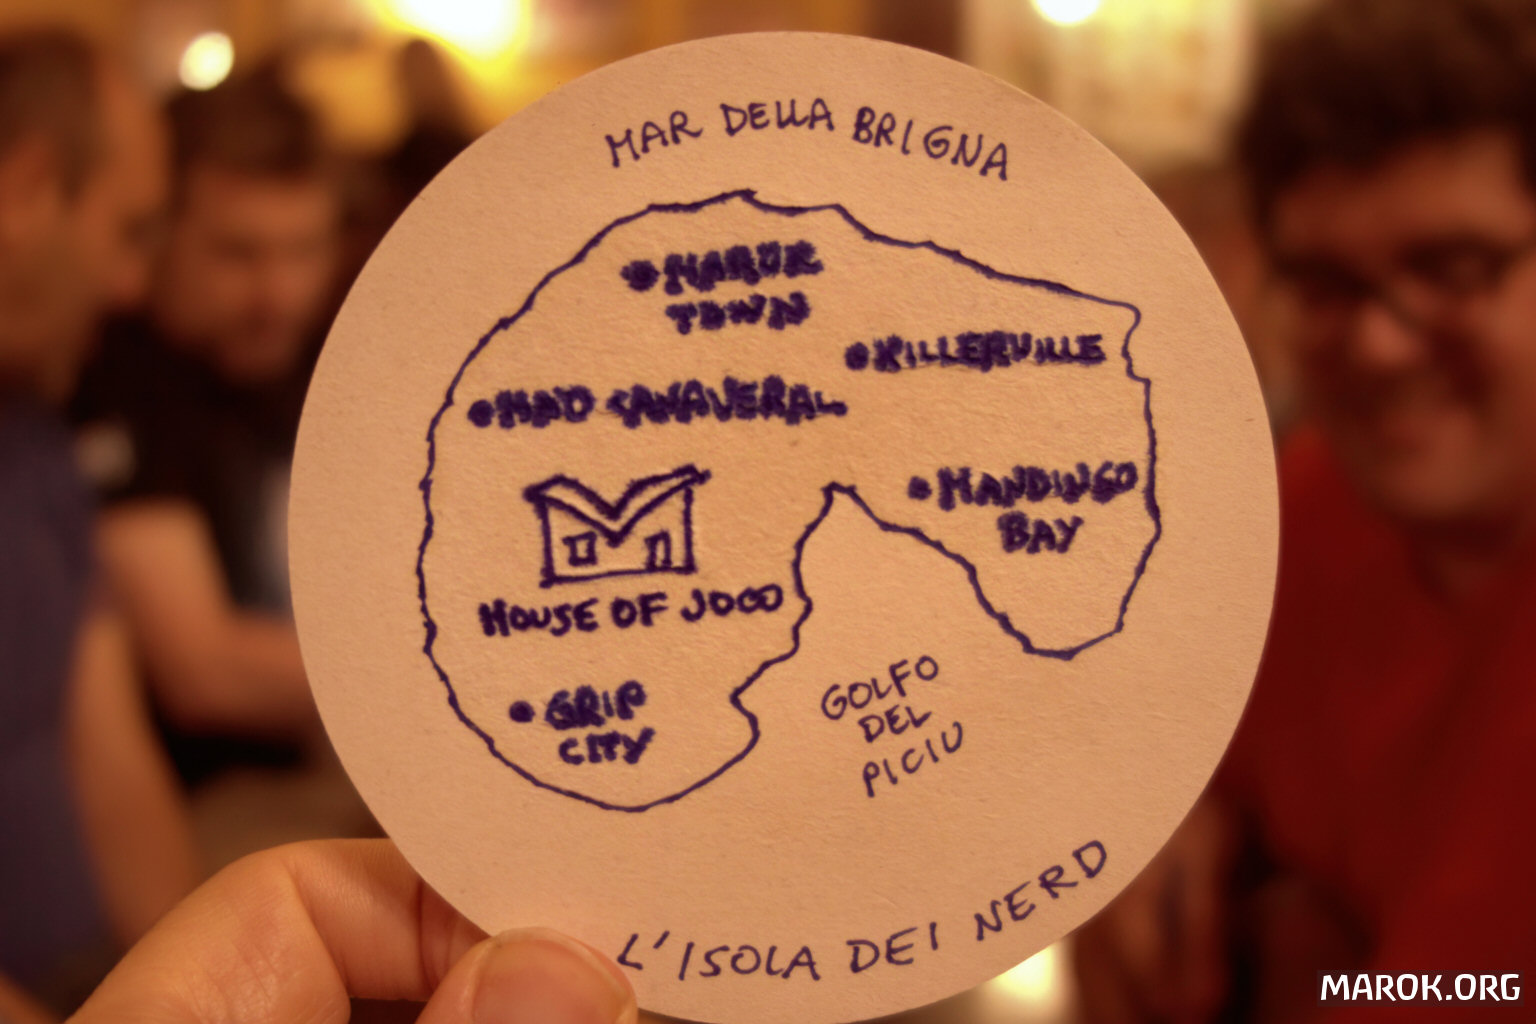 MAR DELLA BRIGNA
MAROK
TOWN
KILLERVILLE
MAD CANAVERAL
MANDINGO
BAY
HOUSE OF JOCO
GRIP
CITY
GOLFO
DEL
PICIU
L'ISOLA DEI NERD
MAROK.ORG